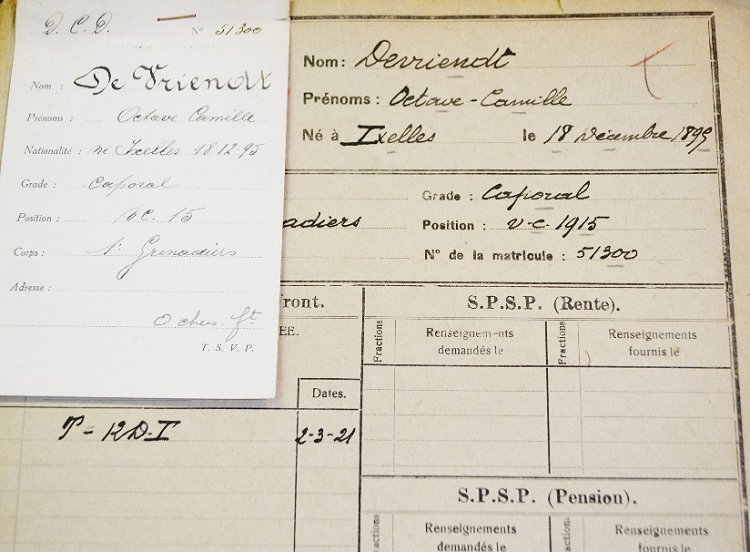 D. C. D. N° 51300
Nom : De Vriendt
Prénoms : Octave Camille
Nationalité : né Ixelles 18 12 95
Grade : Caporal
Position : v.c. 15
Corps : 1r Grenadiers
Adresse :
T. S. V. P.
Nom : Devriendt
Prénoms : Octave-Camille
Né à Ixelles le 18 Décembre 1895
adiers
Grade : Caporal
Position : v-c-1915
N° de la matricule : 51300
ront.
ÉE.
Dates.
T- KD-I 2-3-21
S.P.S.P. (Rente).
Fractions
Renseignements demandés le
Fractions
Renseignements fournis le
S.P.S.P. (Pension).
Fractions
Renseignements
demandés le
Fractions
Renseignements
fournis le